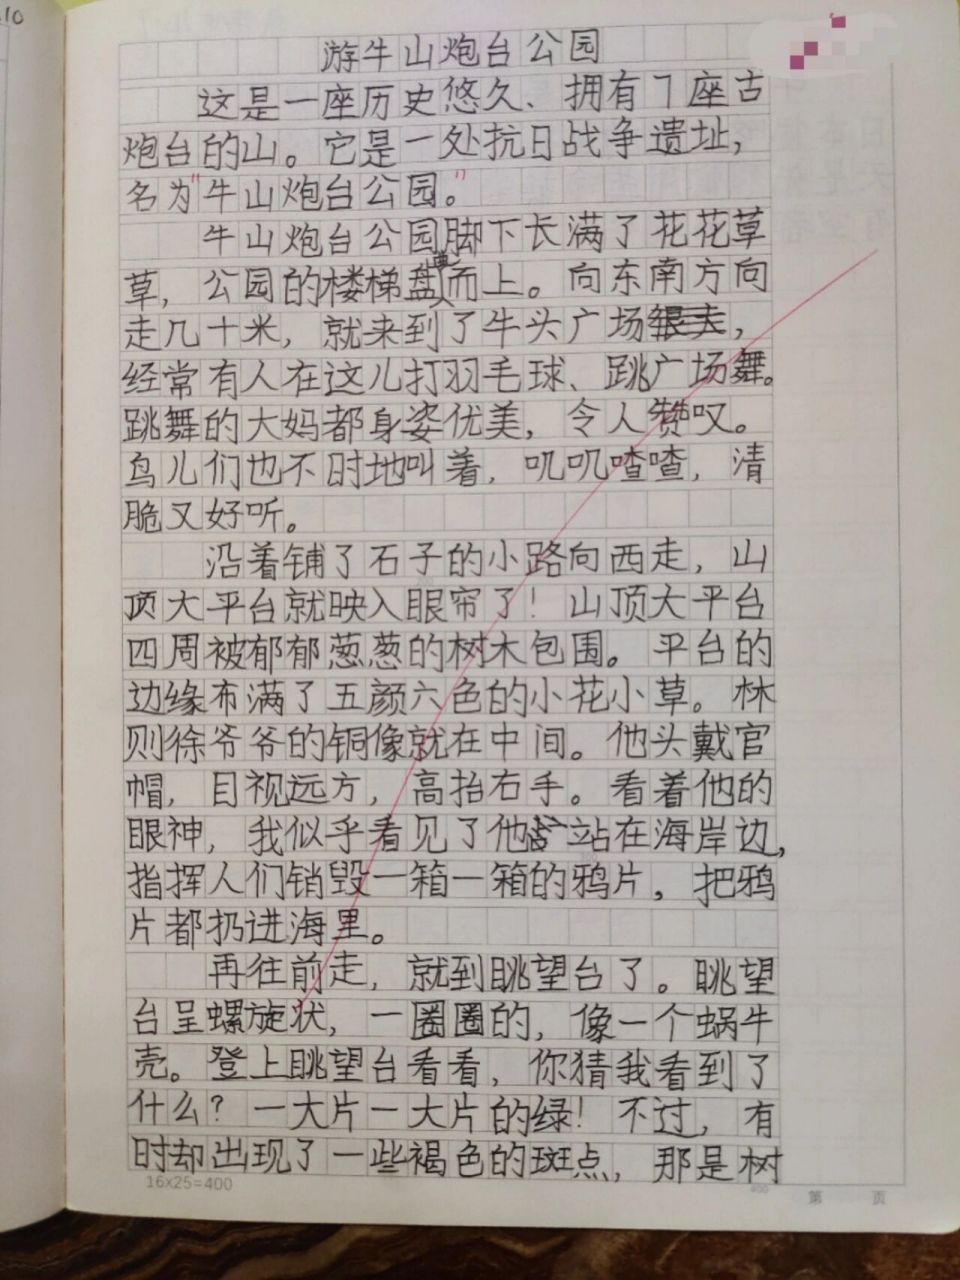 游牛山炮台公园
这是一座历史悠久、拥有7座古
炮台的山。它是一处抗日战争遗址，
名为“牛山炮台公园。”
牛山炮台公园脚下长满了花花草
草，公园的楼梯盘而上。向东南方向
走几十米，就来到了牛头广场，
经常有人在这儿打羽毛球、跳广场舞。
跳舞的大妈都身姿优美，令人赞叹。
鸟儿们也不时地叫着，叽叽喳喳，清
脆又好听。
沿着铺了石子的小路向西走，山
顶大平台就映入眼帘了！山顶大平台
四周被郁郁葱葱的树木包围。平台的
边缘布满了五颜六色的小花小草。林
则徐爷爷的铜像就在中间。他头戴官
帽，目视远方，高抬右手。看着他的
眼神，我似乎看见了他站在海岸边，
指挥人们销毁一箱一箱的鸦片，把鸦
片都扔进海里。
再往前走，就到眺望台了。眺望
台呈螺旋状，一圈圈的，像一个蜗牛
壳。登上眺望台看看，你猜我看到了
什么？一大片一大片的绿！不过，有
时却出现了一些褐色的斑点，那是树
16x25=400
第 页